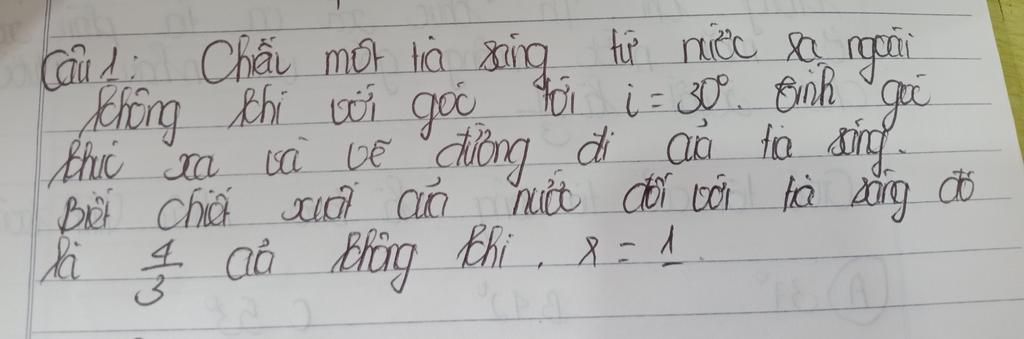 Câu 1: Chiếu một tia sáng từ nước ra ngoài
không khí với góc tới i = 30°. Tính góc
khúc xạ và vẽ đường đi của tia sáng.
Biết chiết xuất của nước đối với tia sáng đó
là 4/3 của không khí. x = 1